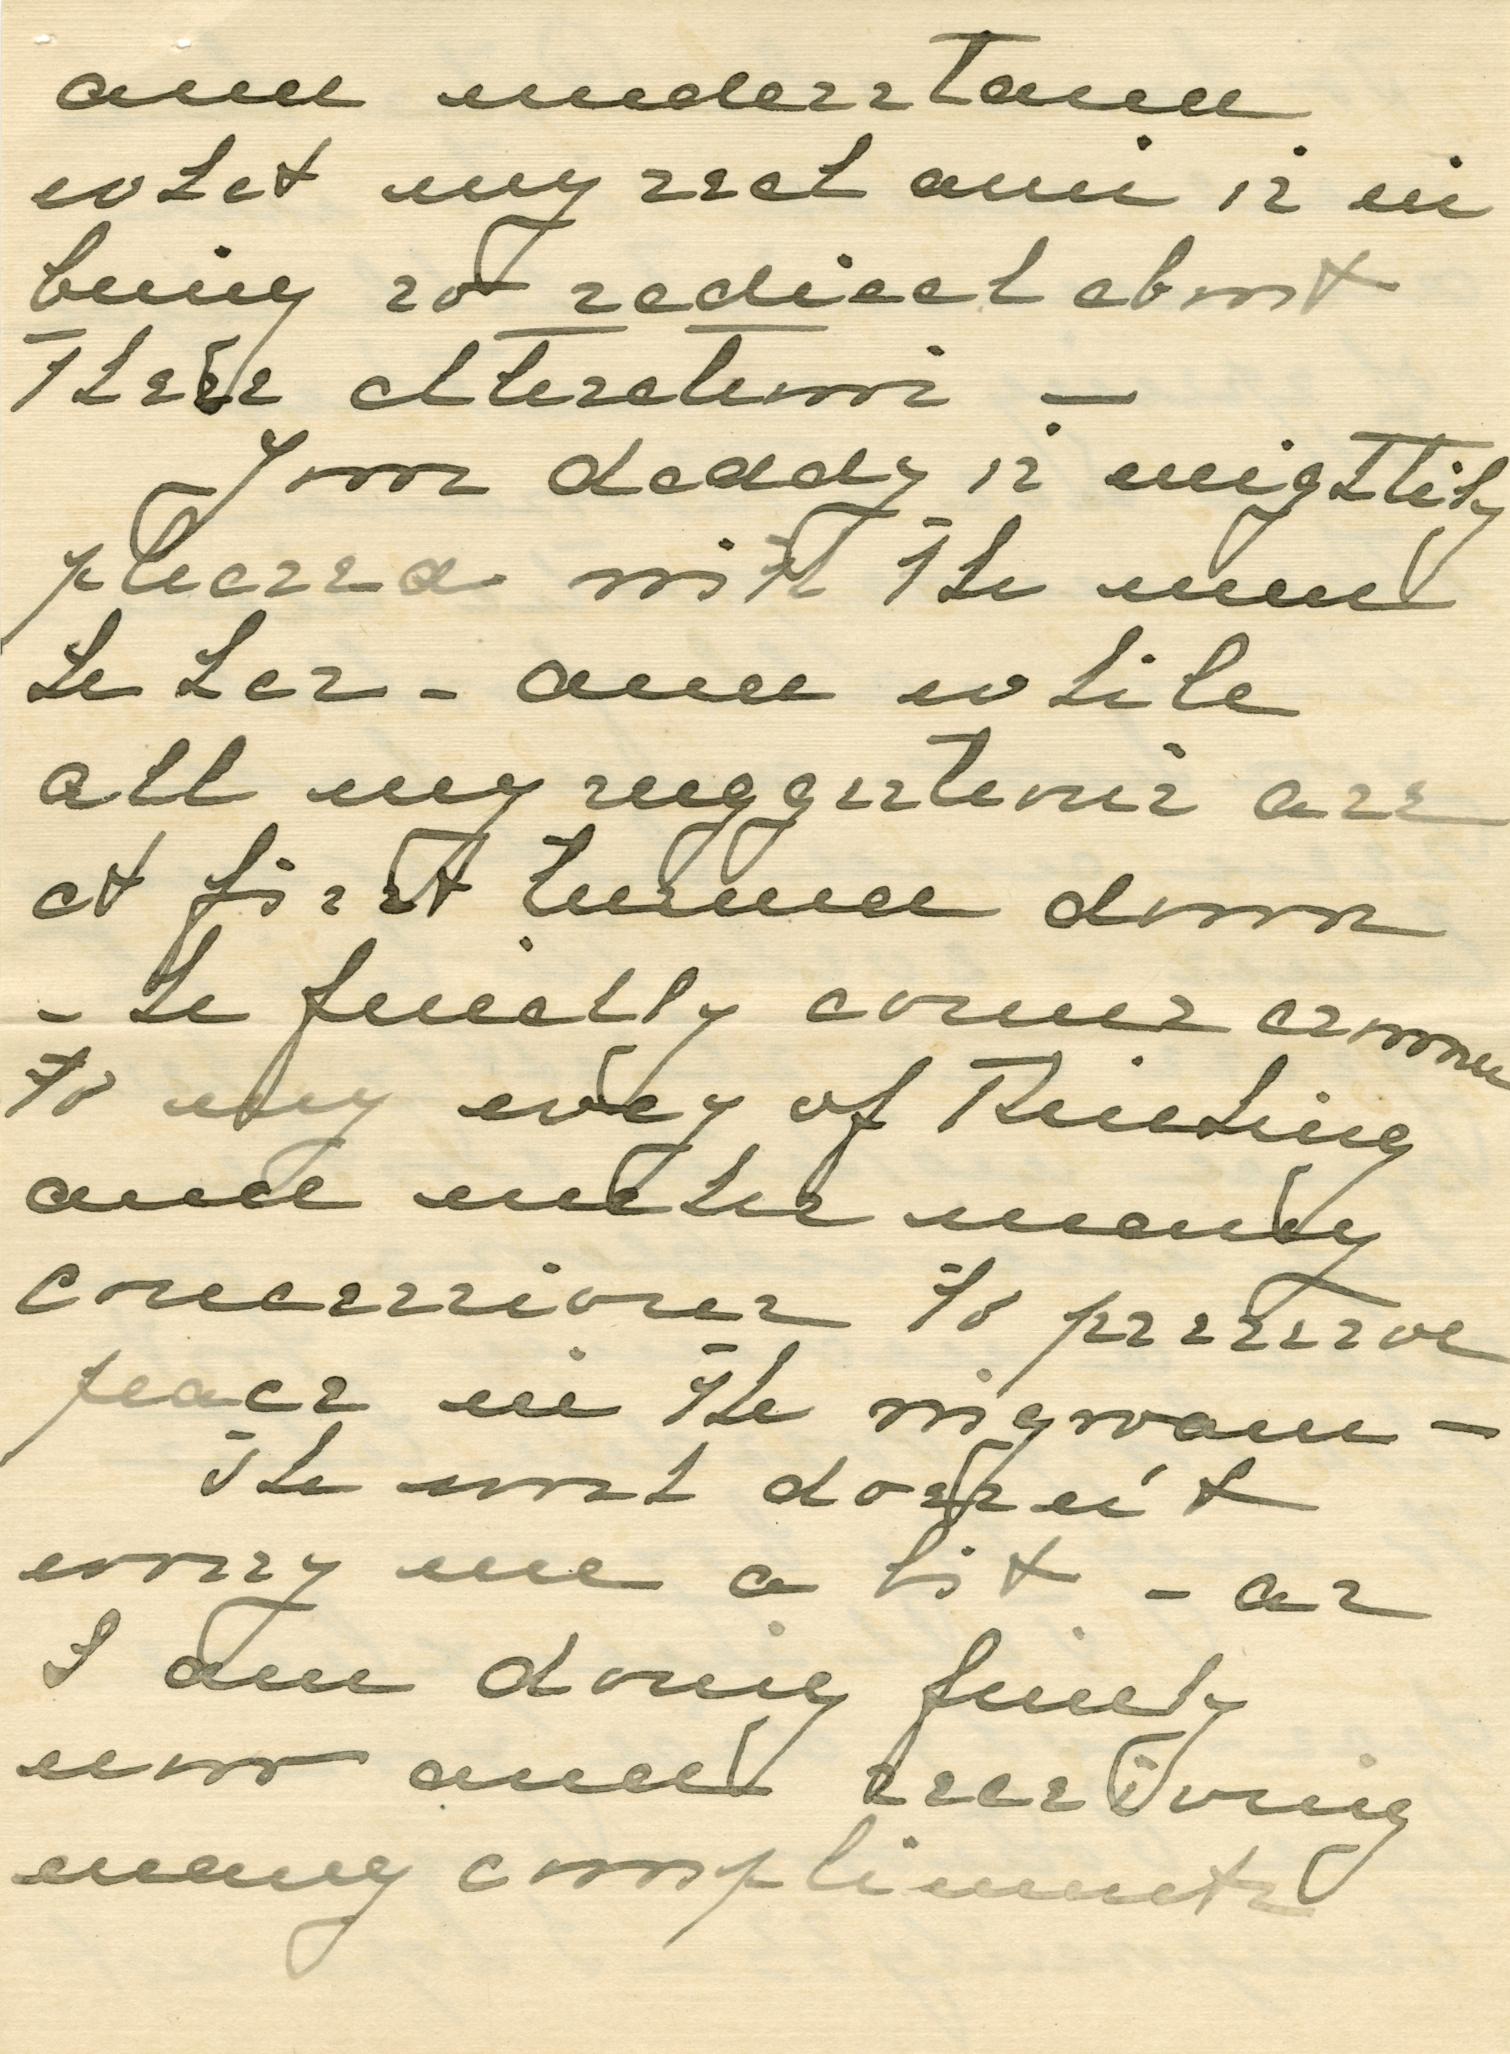 and understand
what my real aim is in
being so radical about
these alterations –
Your daddy is mightily
pleased with the room
he has – and while
all my suggestions are
at first turned down
– he finally comes around
to my way of thinking
and makes many
concessions to preserve
peace in the wigwam –
The work doesn't
worry me a bit – as
I am doing finely
now and receiving
many compliments